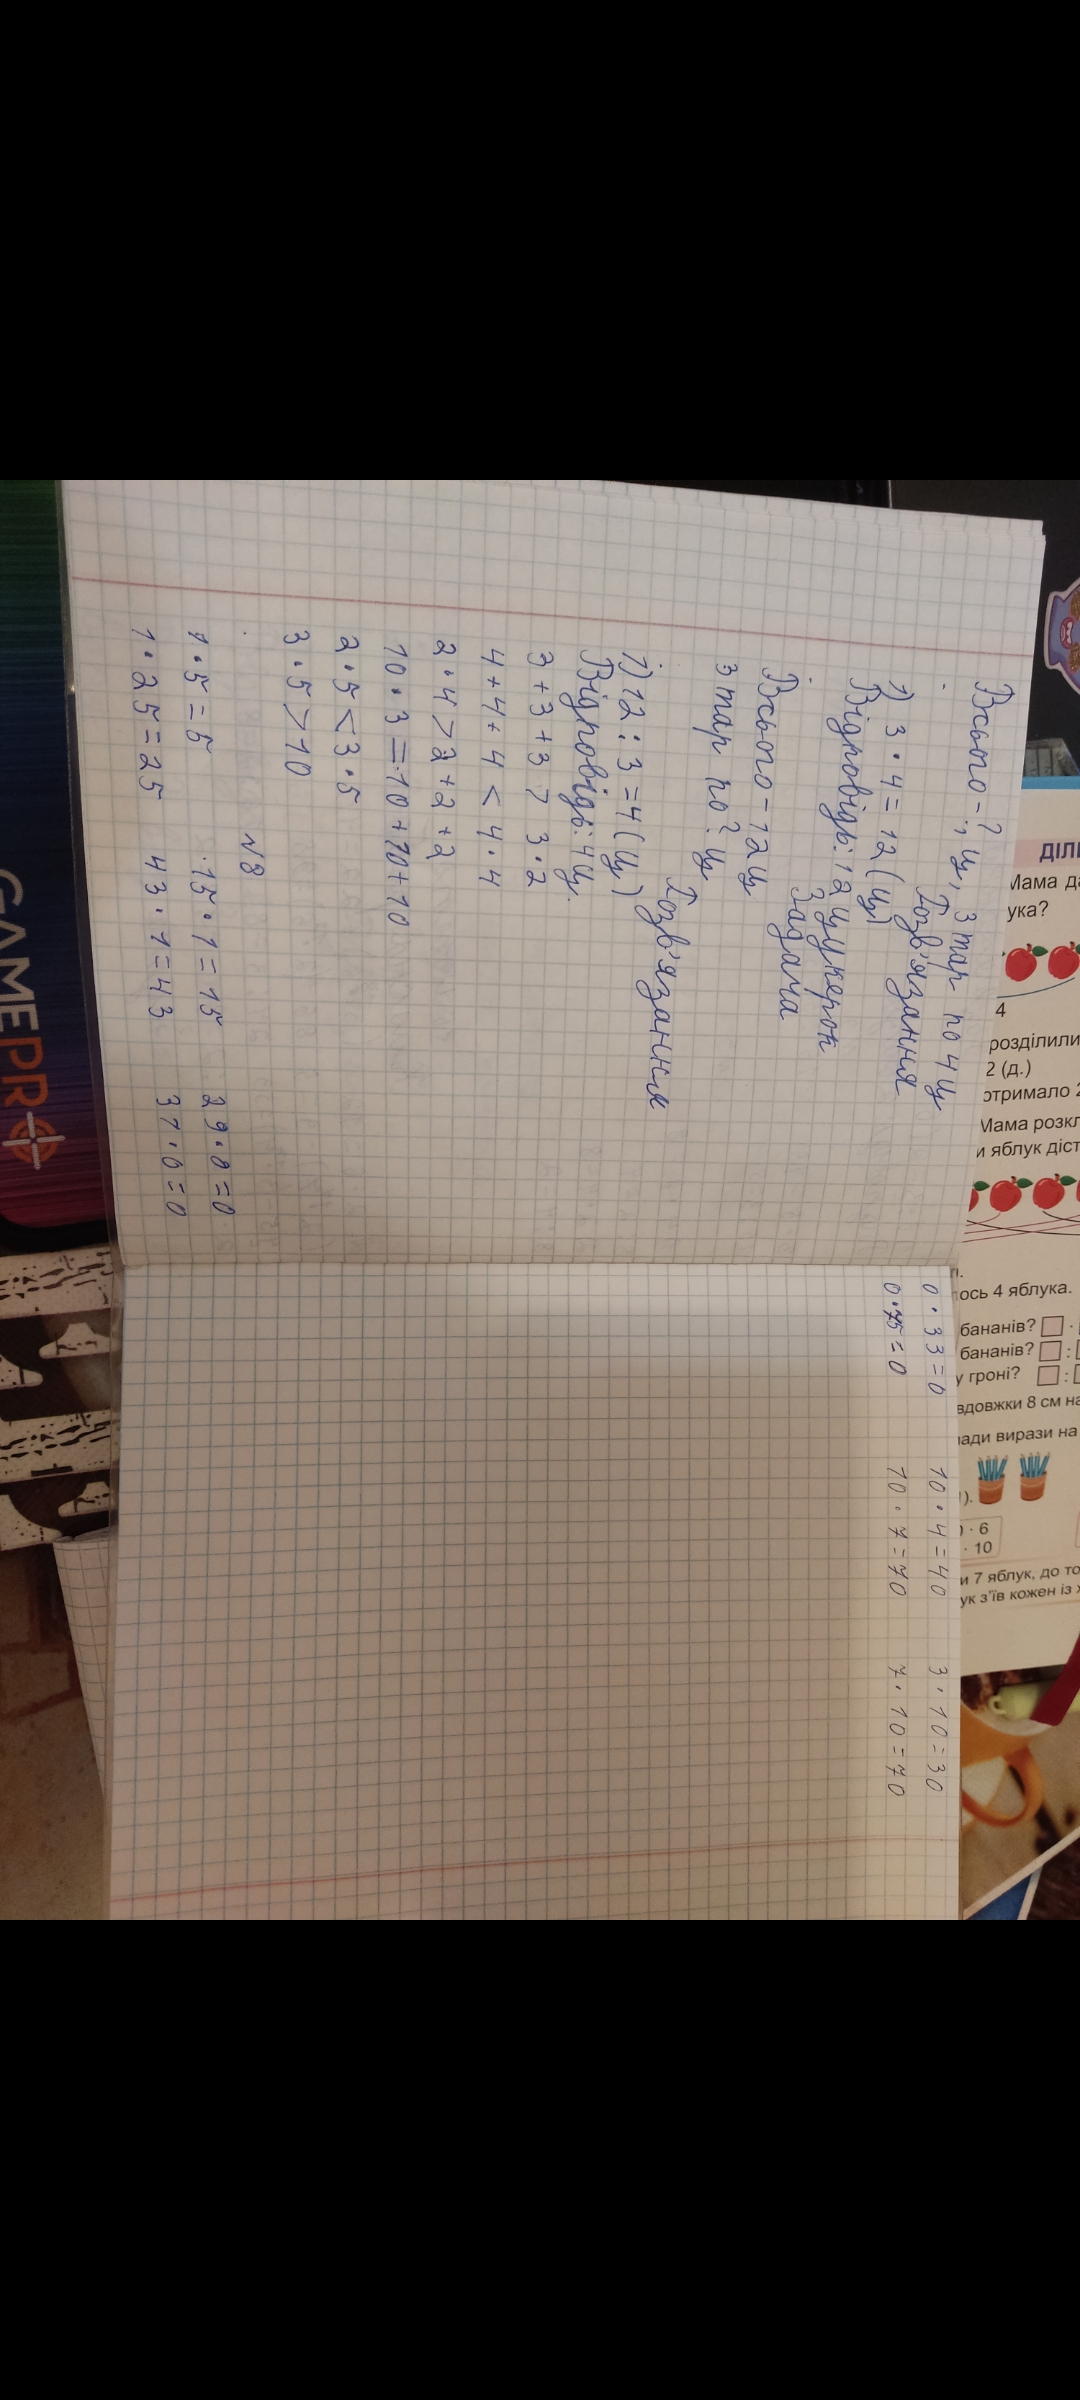 Всього - ?, ц, 3 тар по 4 ц
Розв'язання
1) 3 · 4 = 12 (ц)
Відповідь: 12 цукерок
Задача
Всього - 12 ц
3 тар по ? ц
Розв'язання
1) 12 : 3 = 4 (ц)
Відповідь: 4 ц.
3 + 3 + 3 > 3 · 2
4 + 4 + 4 < 4 · 4
2 · 4 > 2 + 2 + 2
10 · 3 = 10 + 10 + 10
2 · 5 < 3 · 5
3 · 5 > 10
№8
1 · 5 = 5 15 · 1 = 15 29 · 0 = 0
1 · 25 = 25 43 · 1 = 43 37 · 0 = 0
0 · 33 = 0 10 · 4 = 40 3 · 10 = 30
0 · 75 = 0 10 · 7 = 70 7 · 10 = 70
ДІЛ
Мама да
ука?
4
розділили
2 (д.)
отримало 2
Мама розкл
и яблук діст
ось 4 яблука.
бананів? ·
бананів? :
у гроні? :
вдовжки 8 см на
ади вирази на
).
) · 6
· 10
и 7 яблук, до то
ук з'їв кожен із
GAMEPRO